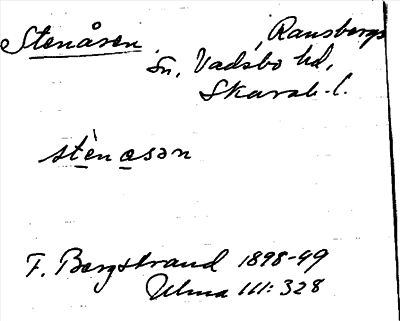 Stenåsen, Ransbergs
Sn, Vadsbo hd,
Skarab. l.
stènåsən
F. Bergstrand 1898-99
Ulma 111: 328